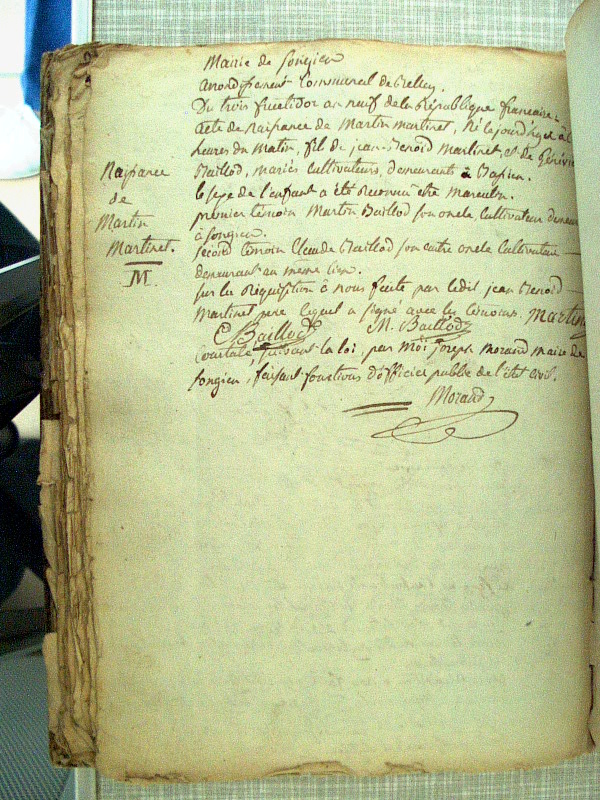 Mairie de Songieu
arrondissement Communal de Belley.
Du trois fructidor an neuf de la République française
acte de Naissance de Martin martinet, Né le jour d'hyer à
heures du Matin, fil de jean Benoid Martinet, et de
Baillod, mariés cultivateurs, demeurants à
le sexe de l'enfant a été reconnu être masculin.
premier temoin Martin Baillod son oncle Cultivateur
à Songieu.
second temoin Claude Baillod son autre oncle Cultivateur
demeurant au meme lieu.
sur la Réquisition à nous faite par ledit jean Benoid
Martinet pere lequel a signé avec les temoins. Martin
C Baillod M. Baillod
Constaté, suivant la loi, par Moi joseph Morand maire de
Songieu, faisant fonctions d'officier public de l'état civil.
Morand
Naissance
de
Martin
Martinet.
M.